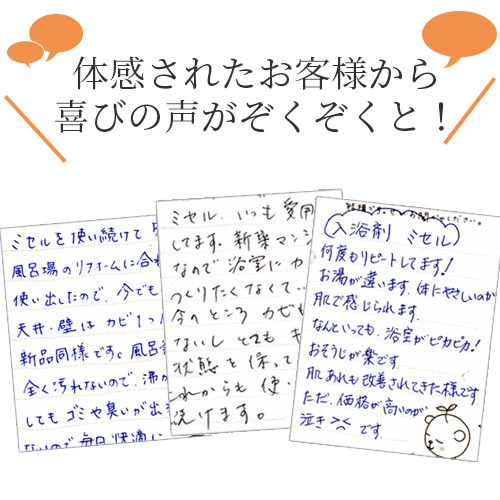 体感されたお客様から
喜びの声がぞくぞくと！
ミセルを使い続けて
風呂場のリフォームに合わ
使い出したので、今でも
天井・壁はカビ1つ
新品同様です。風呂
全く汚れないので、沸か
してもゴミや臭いが出
ないので毎日快適に
ミセル、いつも愛用
してます。新築マンシ
なので浴室にカ
つくりたくなくて…
今のところカビも
ないしとてもキ
状態を保って
これからも使い
続けます。
(入浴剤 ミセル)
何度もリピートしてます!
お湯が違います。体にやさしいのが
肌で感じられます。
なんといっても、浴室がピカピカ!
おそうじが楽です
肌あれも改善されてきた様です
ただ、価格が高いのが
泣き>< です。